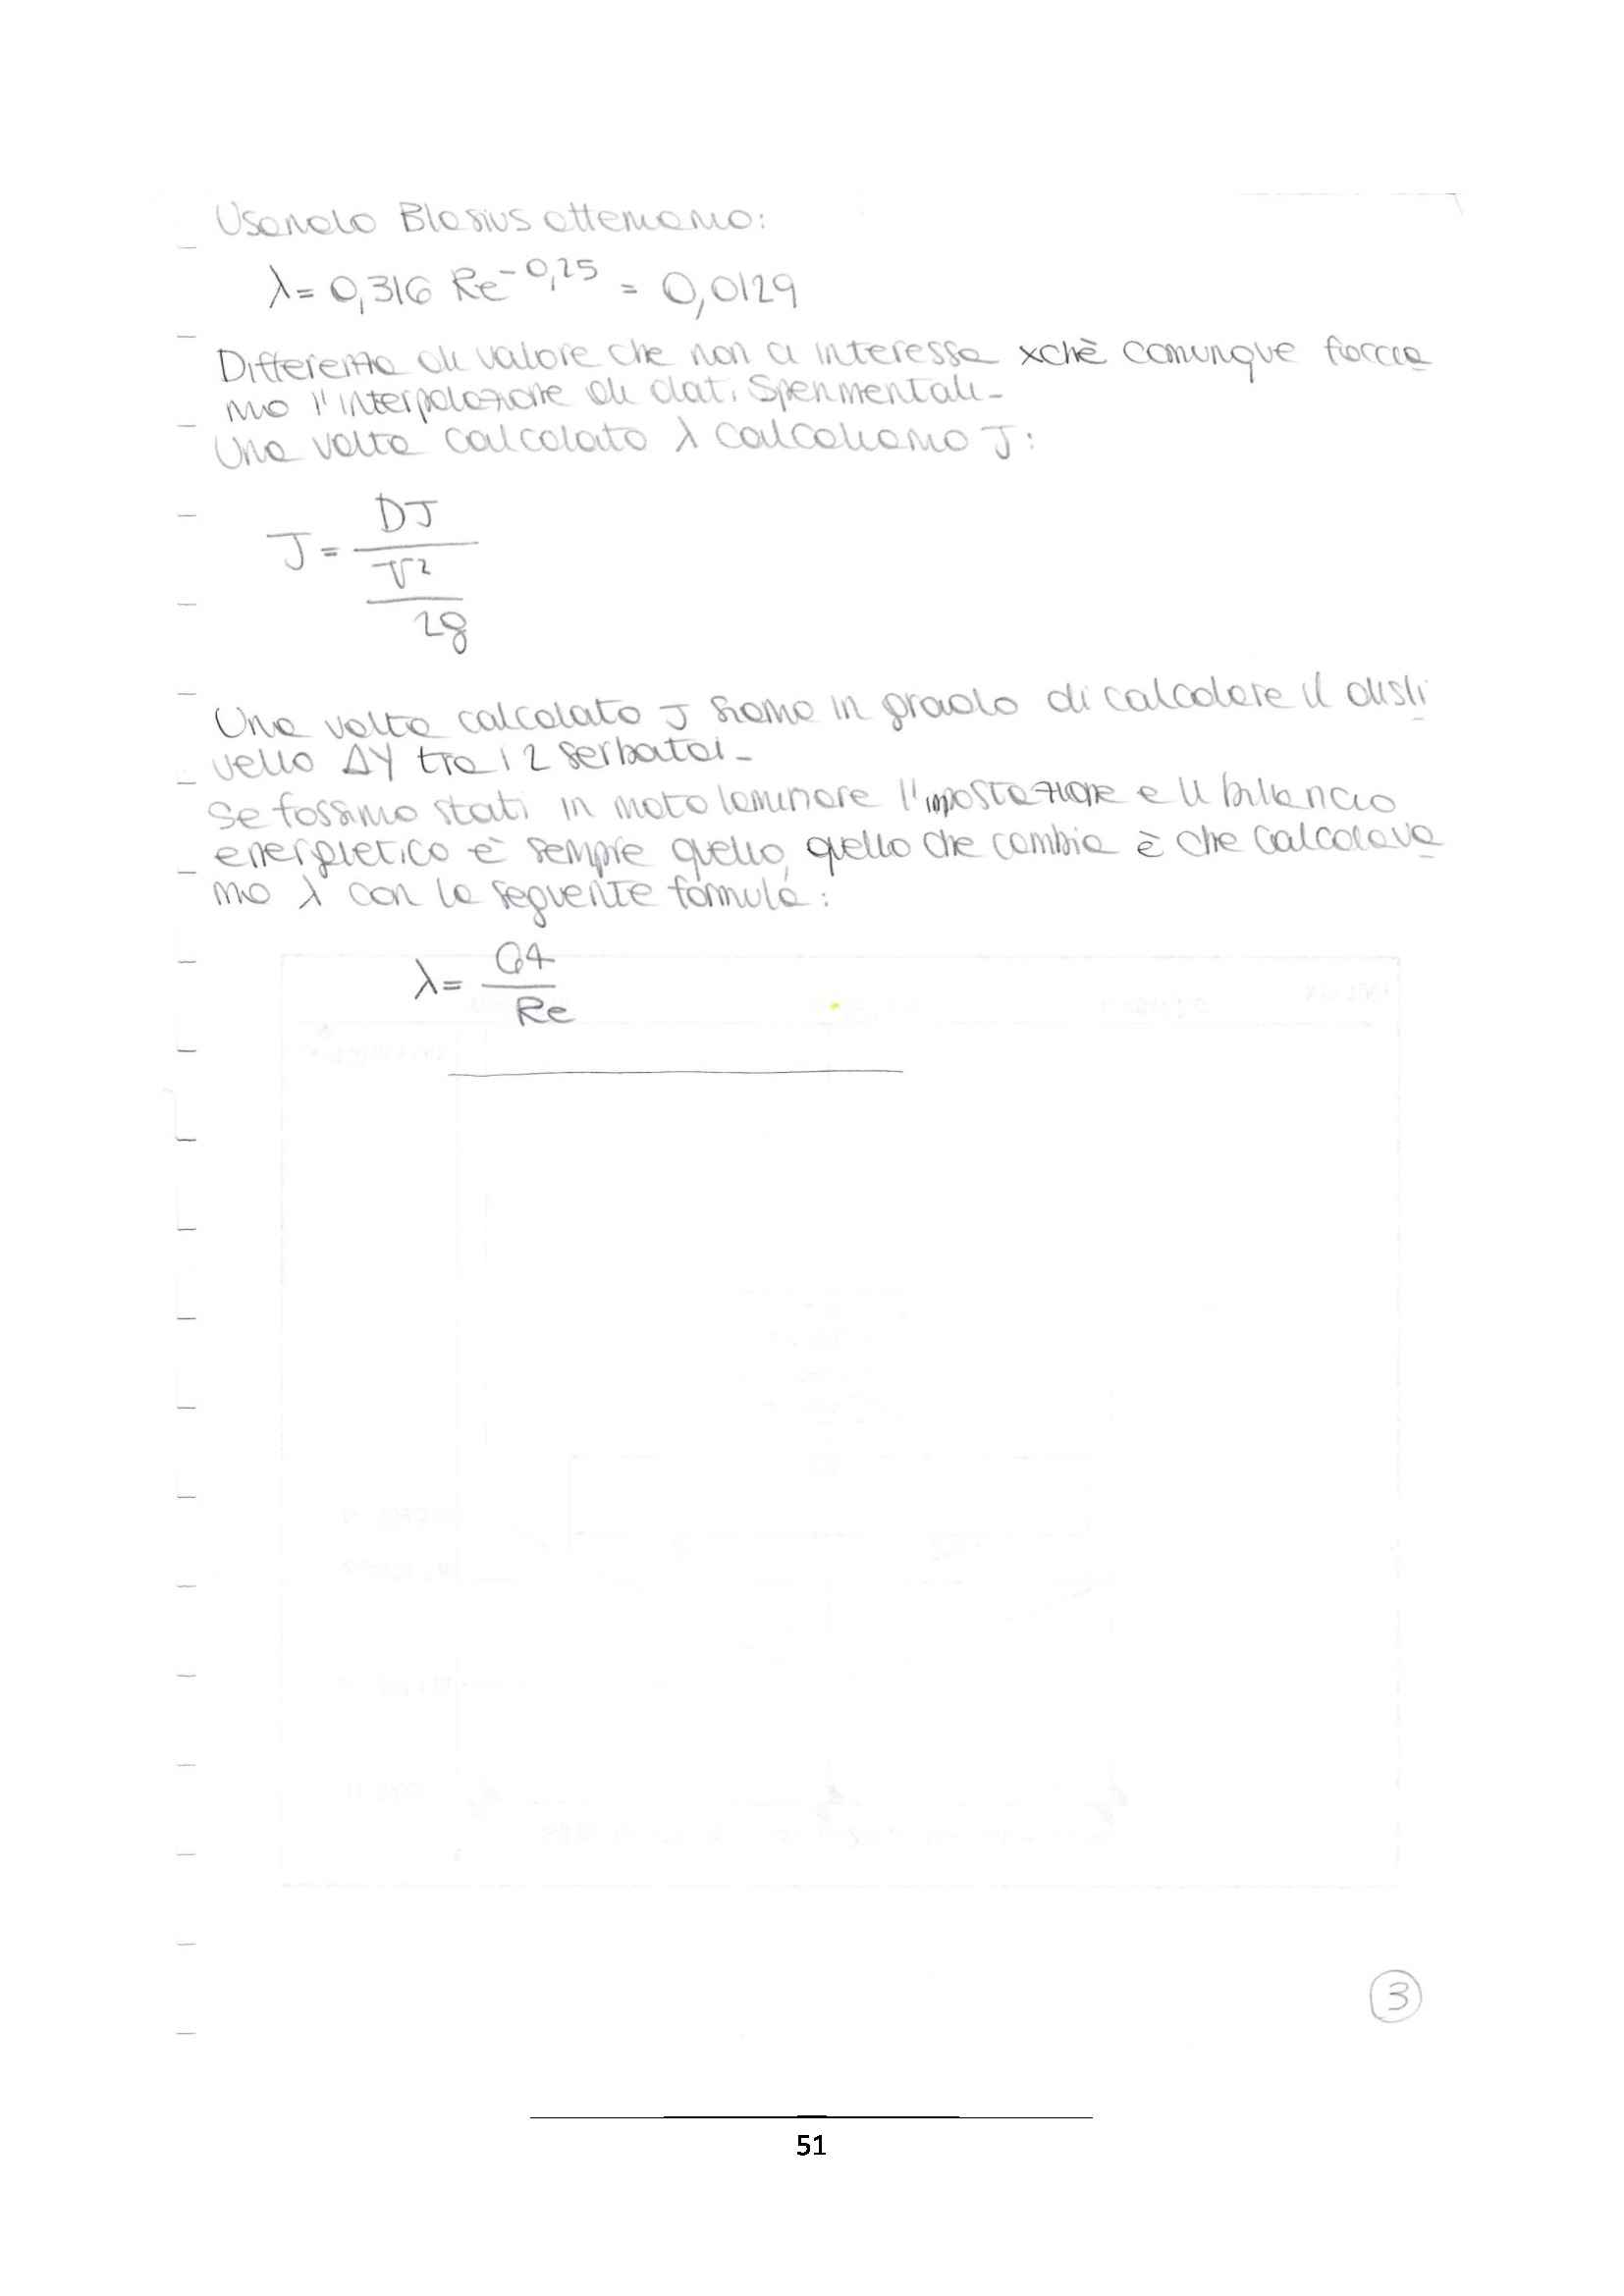 Usando Blasius otteniamo:
λ = 0,316 Re^-0,25 = 0,0129
Differenza di valore che non ci interessa xchè comunque faccia
mo l'interpolazione di dati Sperimentali-
Una volta calcolato λ calcoliamo J:
J = DJ / (V² / 2g)
Una volta calcolato J siamo in grado di calcolare il disli
vello ΔY tra i 2 serbatoi-
Se fossimo stati in moto laminare l'impostazione e il bilancio
energietico è sempre quello, quello che cambia è che calcolava
mo λ con la seguente formula:
λ = 64 / Re
3
51